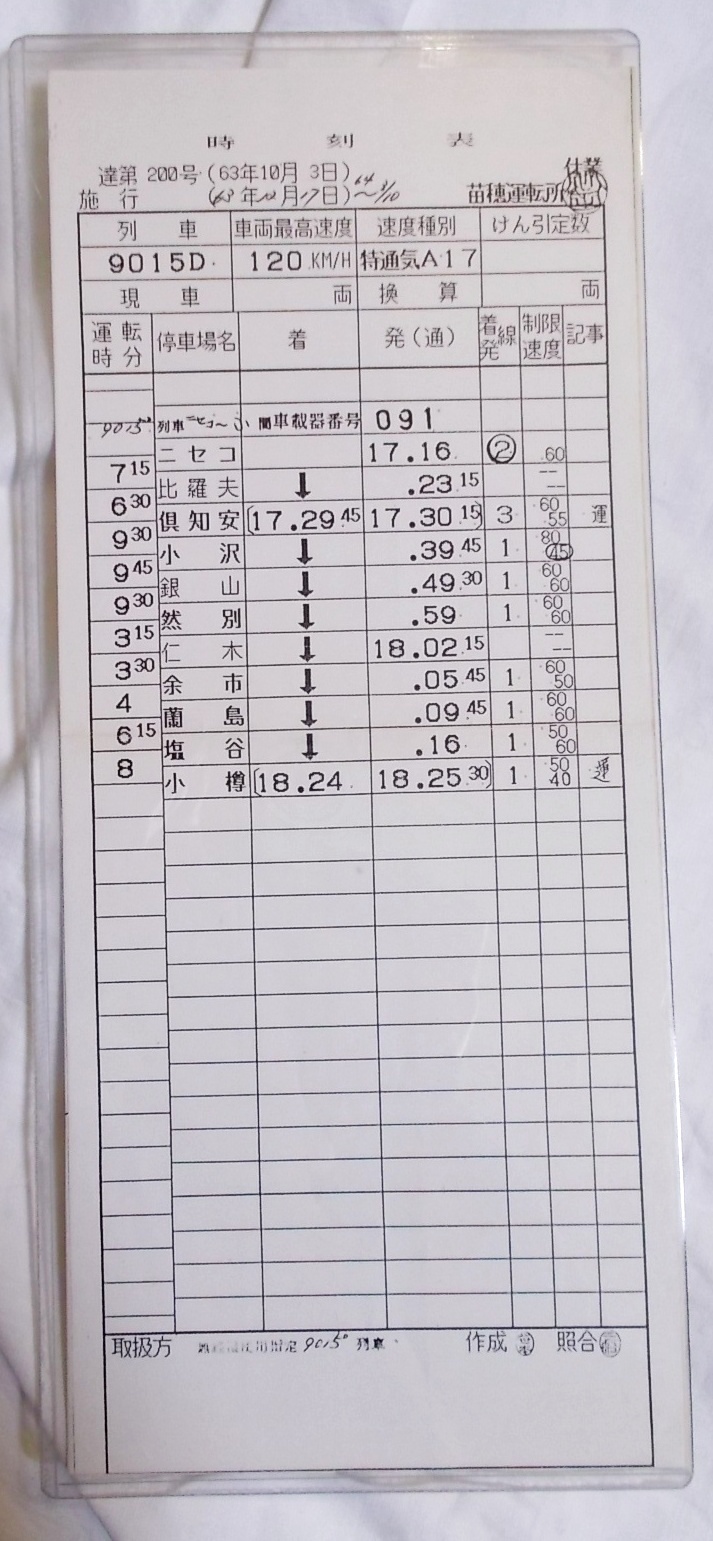 時 刻 表
達第 200号 (63年10月 3日)
施 行 (63年12月17日)~3/10 苗穂運転所
列 車 車両最高速度 速度種別 けん引定数
9015D 120 KM/H 特通気A17
現 車 両 換 算 両
運転時分 停車場名 着 発(通) 着発線 制限速度 記事
9015D 列車 ニセコ~ 間車載器番号 091
ニセコ 17.16 ② 60
7 15
比羅夫 ↓ .23 15 -- --
6 30
倶知安 (17.29 45 17.30 15) 3 60 55 運
9 30
小沢 ↓ .39 45 1 80 45
9 45
銀山 ↓ .49 30 1 60 60
9 30
然別 ↓ .59 1 60 60
3 15
仁木 ↓ 18.02 15 -- --
3 30
余市 ↓ .05 45 1 60 50
4
蘭島 ↓ .09 45 1 60 60
6 15
塩谷 ↓ .16 1 50 60
8
小樽 (18.24 18.25 30) 1 50 40 運
取扱方 指定 9015D 列車 作成 照合